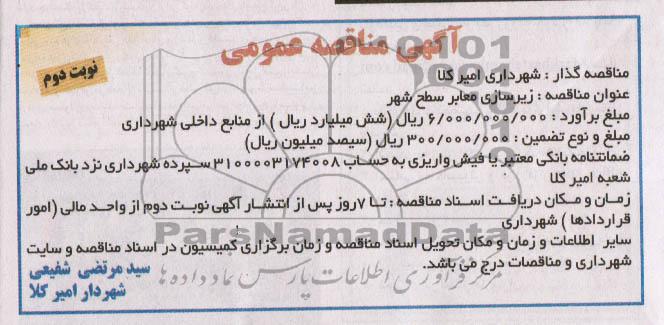 آگهی مناقصه عمومی
نوبت دوم
مناقصه گذار : شهرداری امیر کلا
عنوان مناقصه : زیرسازی معابر سطح شهر
مبلغ برآورد : ۶/۰۰۰/۰۰۰/۰۰۰ ریال (شش میلیارد ریال ) از منابع داخلی شهرداری
مبلغ و نوع تضمین : ۳۰۰/۰۰۰/۰۰۰ ریال (سیصد میلیون ریال)
ضمانتنامه بانکی معتبر یا فیش واریزی به حساب ۳۱۰۰۰۰۳۱۷۴۰۰۸ سپرده شهرداری نزد بانک ملی
شعبه امیر کلا
زمان و مکان دریافت اسناد مناقصه : تا ۷روز پس از انتشار آگهی نوبت دوم از واحد مالی (امور
قراردادها ) شهرداری
سایر اطلاعات و زمان و مکان تحویل اسناد مناقصه و زمان برگزاری کمیسیون در اسناد مناقصه و سایت
شهرداری و مناقصات درج می باشد.
سید مرتضی شفیعی
شهردار امیر کلا
ParsNamadData
مرکز فرآوری اطلاعات پارس نماد داده ها